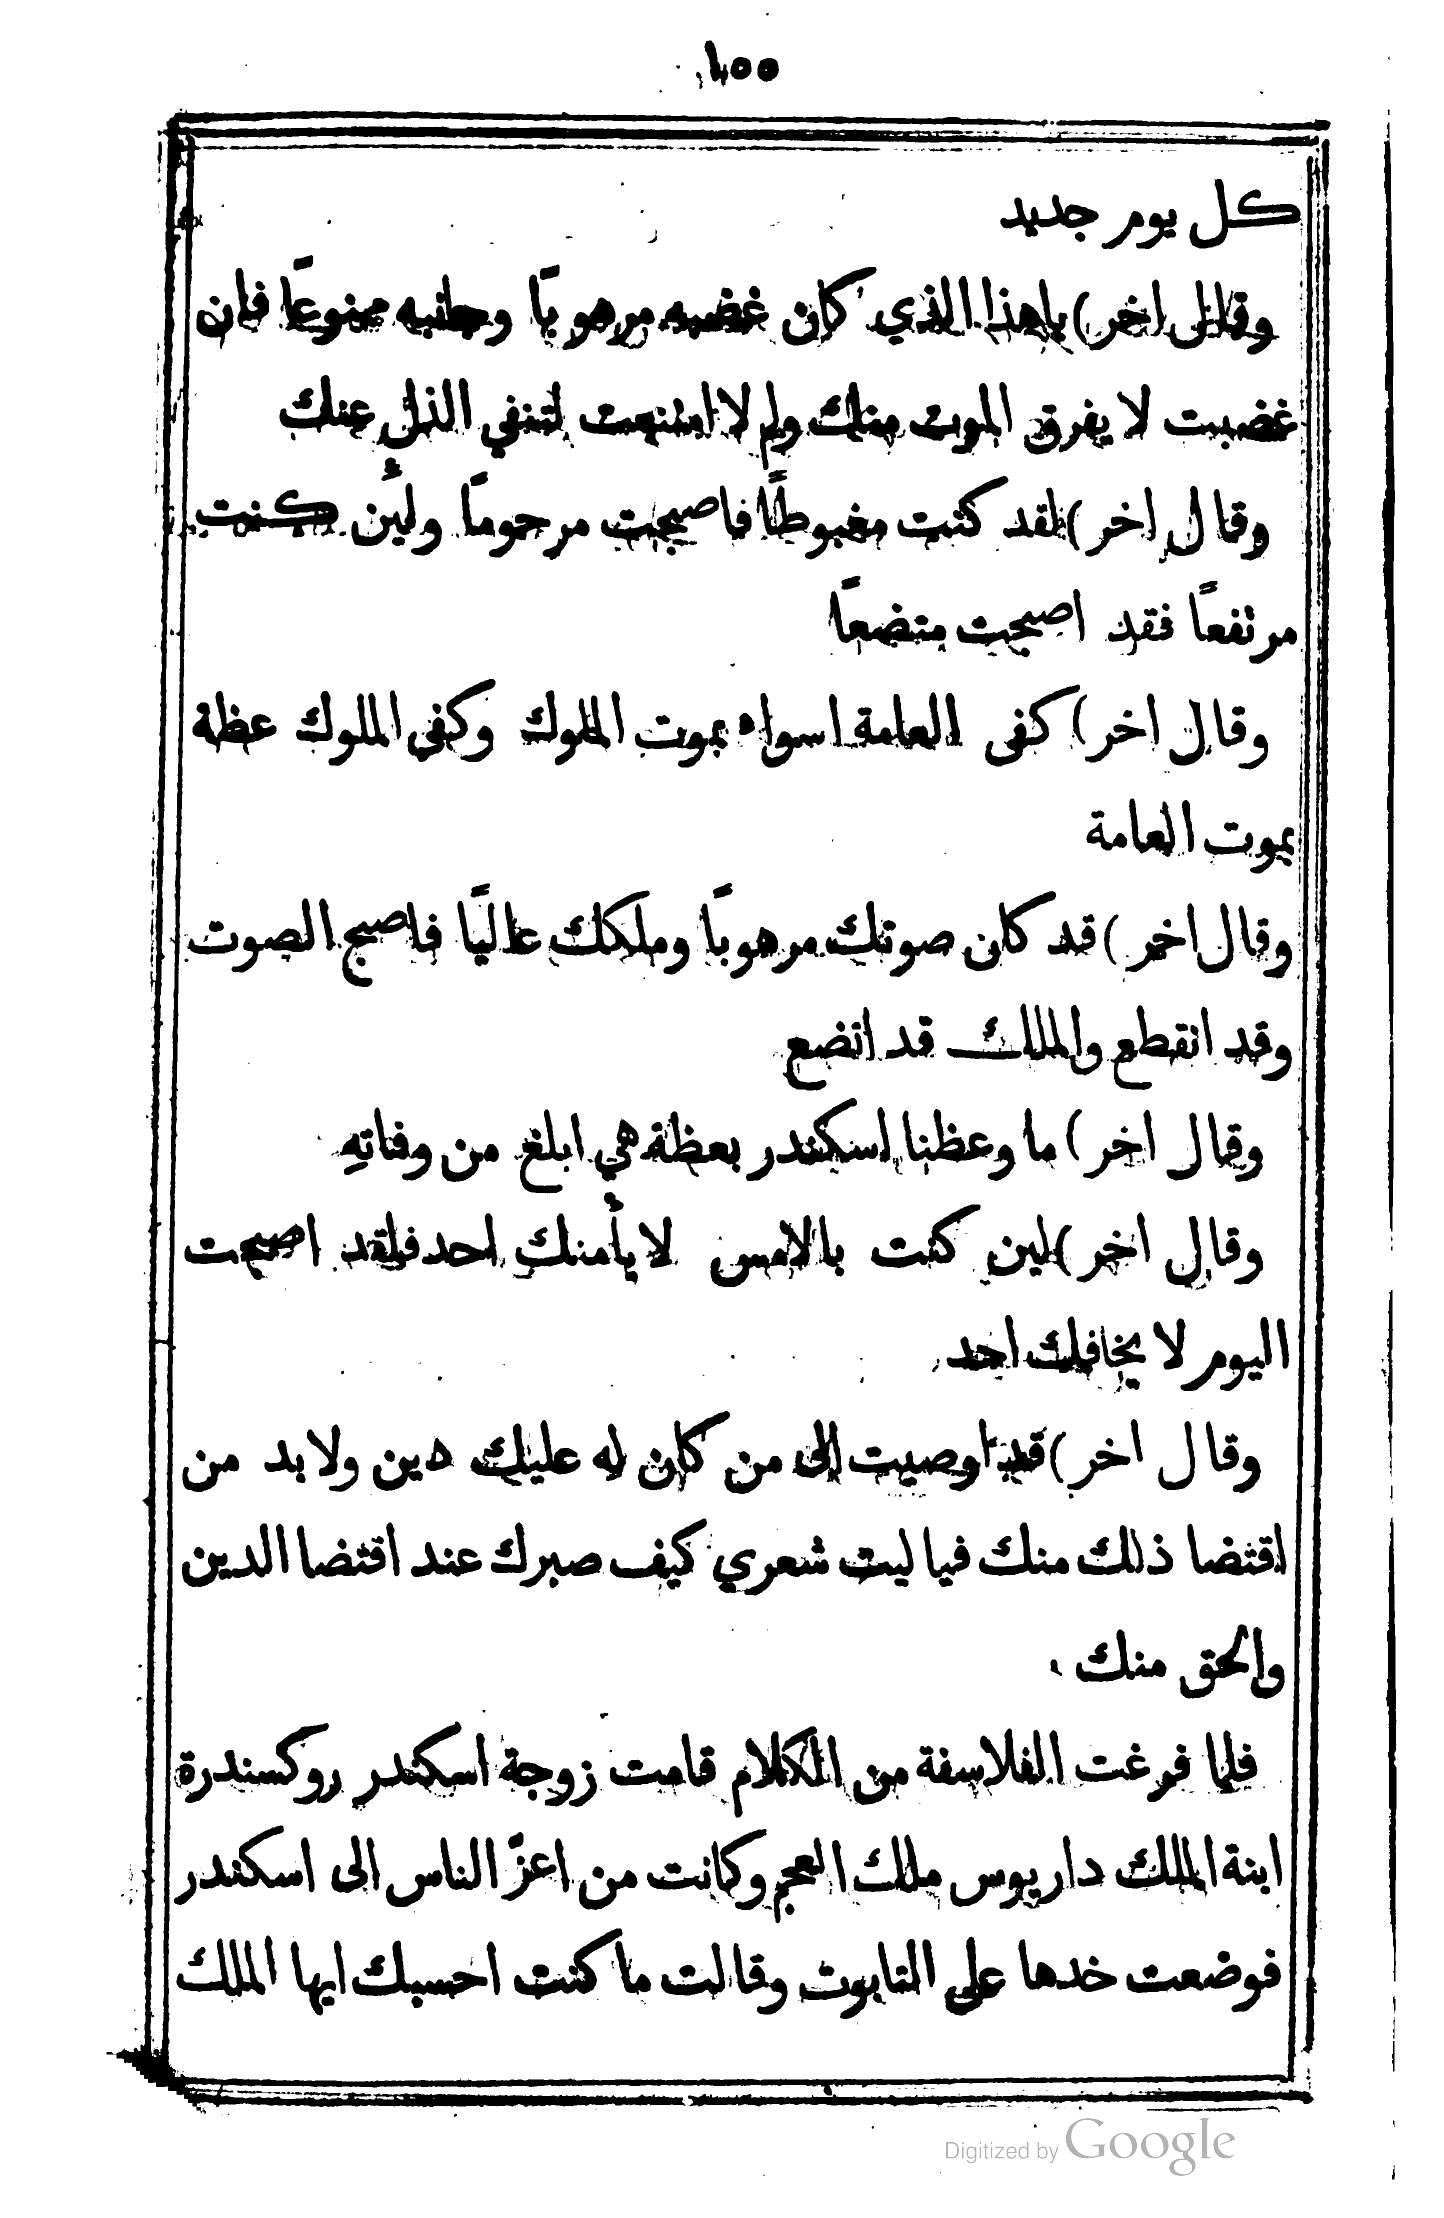 ١٥٥
كل يوم جديد
وقال اخر) ياهذا الذي كان غضبه مرهوبًا وجانبه ممنوعًا فان
غضبت لا يفرق الموت منك ولم لا امتنعت لتنفي الذل عنك
وقال اخر) لقد كنت مغبوطًا فاصبحت مرحومًا ولئِن كنت
مرتفعًا فقد اصبحت متضعًا
وقال اخر) كفى العامة اسواء بموت الملوك وكفى الملوك عظة
بموت العامة
وقال اخر) قد كان صوتك مرهوبًا وملكك عاليًا فاصبح الصوت
وقد انقطع والملك قد اتضع
وقال اخر) ما وعظنا اسكندر بعظة هي ابلغ من وفاتهِ
وقال اخر) لين كنت بالامس لا يأمنك احد فلقد اصبحت
اليوم لا يخافك احد
وقال اخر) قد اوصيت الى من كان له عليك دين ولا بد من
اقتضا ذلك منك فيا ليت شعري كيف صبرك عند اقتضا الدين
والحق منك
فلما فرغت الفلاسفة من الكلام قامت زوجة اسكندر روكسندرة
ابنة الملك داريوس ملك العجم وكانت من اعزّ الناس الى اسكندر
فوضعت خدها على التابوت وقالت ما كنت احسبك ايها الملك
Digitized by Google